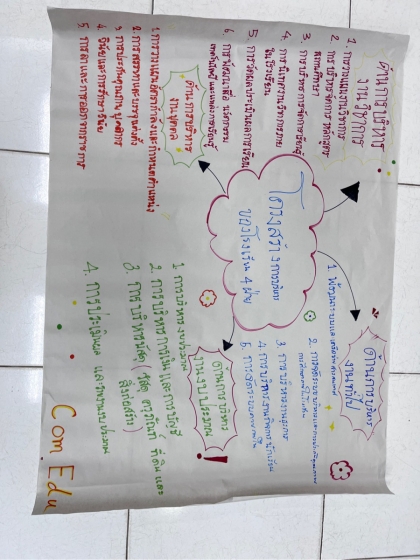 โครงสร้างการบริหาร
ของโรงเรียน 4 ฝ่าย
ด้านการบริหาร
งานวิชาการ
1. การวางแผนงานวิชาการ
2. การบริหารจัดการหลักสูตร
สถานศึกษา
3. การบริหารการจัดการเรียนรู้
4. การนิเทศงานวิชาการภาย
ในโรงเรียน
5. การวัดผลประเมินผลการเรียน
6. การพัฒนาสื่อ นวัตกรรม
เทคโนโลยี และแหล่งการเรียนรู้
ด้านการบริหาร
งานบุคคล
1. การวางแผนอัตรากำลังและกำหนดตำแหน่ง
2. การสรรหาและบรรจุแต่งตั้ง
3
4 วินัยและการรักษาวินัย
5 การลาและการออกจากราชการ
ด้านการบริหาร
งานทั่วไป
1.
2.
3. การบริหารงานธุรการ
4
5.
ด้านการบริหาร
งานงบประมาณ
!
1. การบริหารงบประมาณ
2. การบริหารการเงิน และ การบัญชี
3. การบริหารพัสดุ ( พัสดุ ครุภัณฑ์ ที่ดิน และ
สิ่งก่อสร้าง)
4.
Com Edu